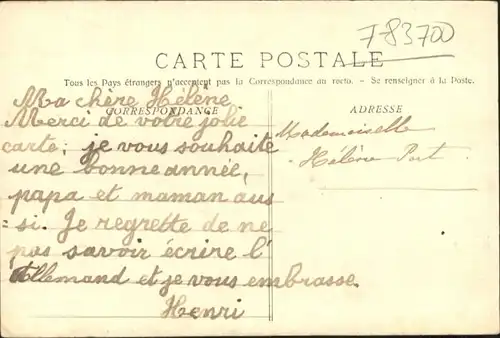 T-83700
CARTE POSTALE
Tous les Pays étrangers n'acceptent pas la Correspondance au recto. - Se renseigner à la Poste.
CORRESPONDANCE
ADRESSE
Ma chère Hélène
Merci de votre jolie
carte; je vous souhaite
une bonne année,
papa et maman aus
=si. Je regrette de ne
pas savoir écrire l'
Allemand et je vous embrasse.
Henri
Mademoiselle
Hélène Port